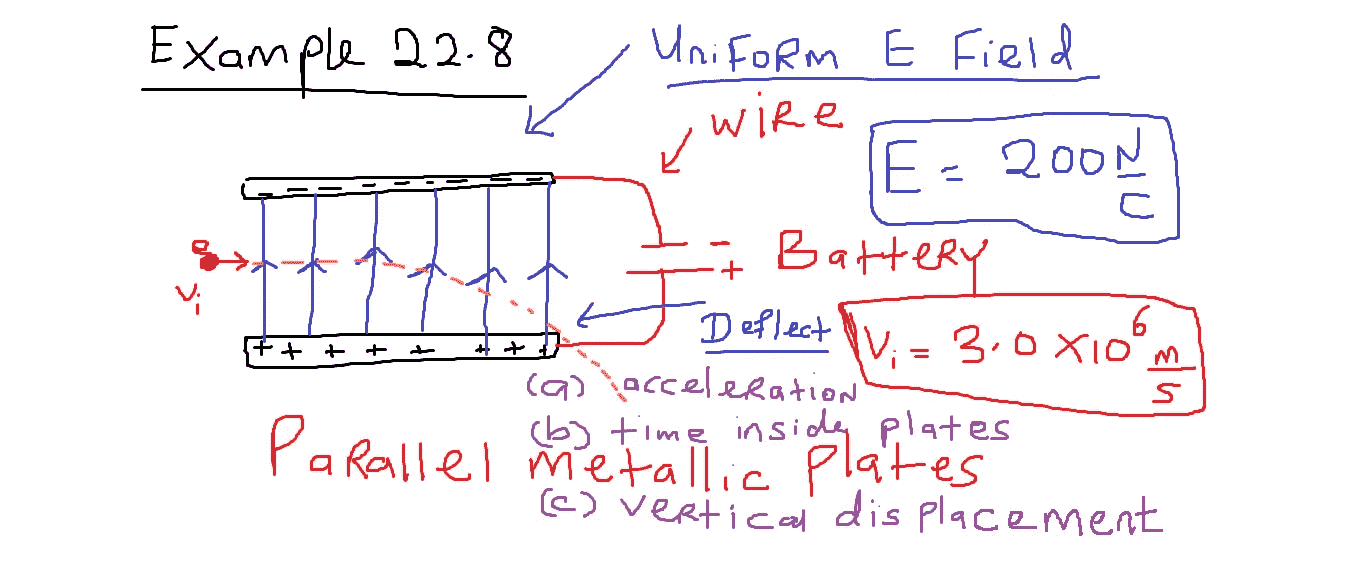 Example 22.8
UNIFORM E Field
WIRE
E = 200 N/C
- - - - - - - - - -
e
Vi
-
+
BatteRy
+ + + + + + + +
Deflect
Vi = 3.0 x10^6 m/s
(a) acceleRation
(b) time inside plates
PaRallel metallic Plates
(c) veRtical displacement